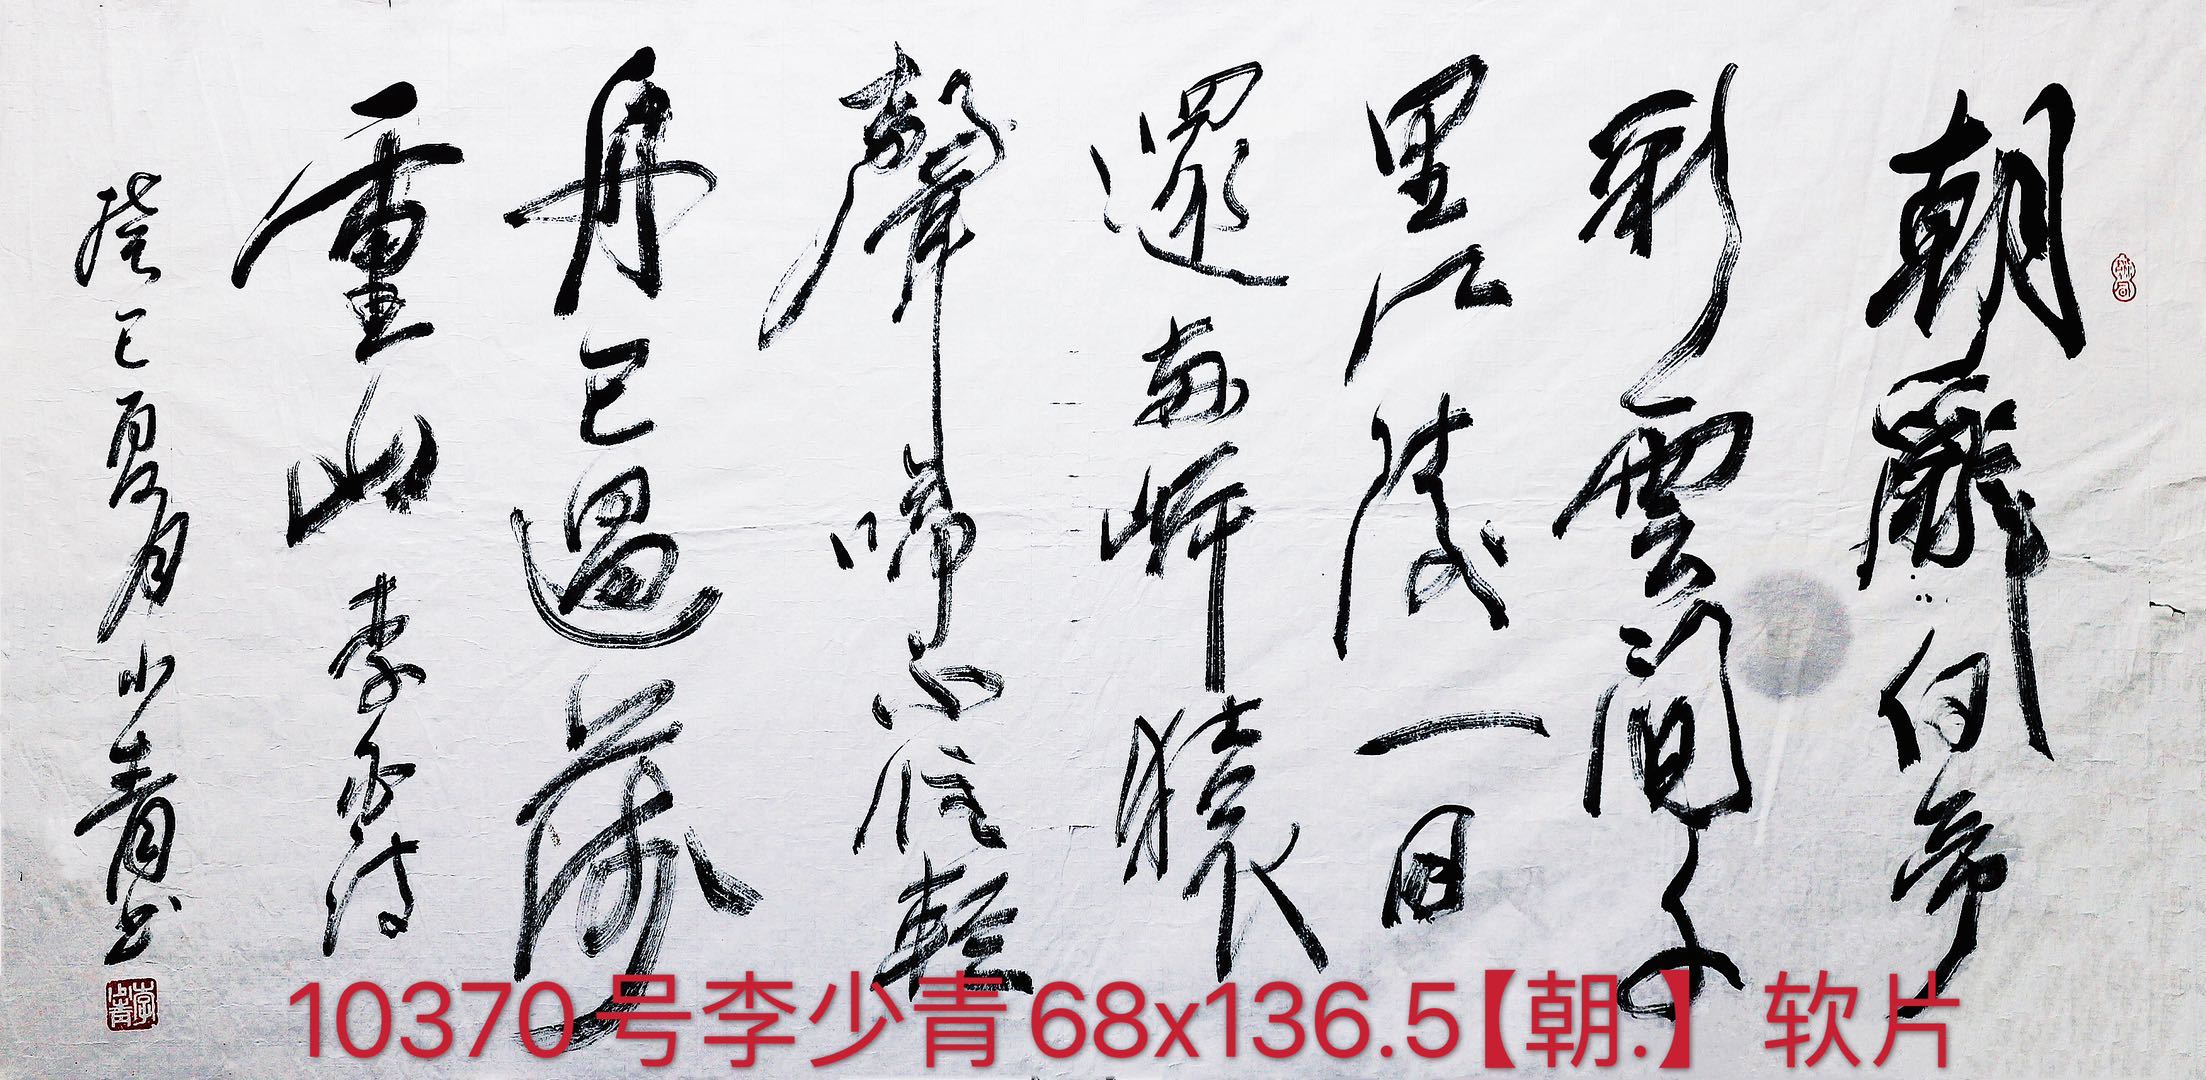 朝辭白帝
彩雲間千
里江陵一日
還兩岸猿
聲啼不住輕
舟已過萬
重山 李白詩
癸巳夏月少青书
李少青
10370号李少青68x136.5【朝.】软片